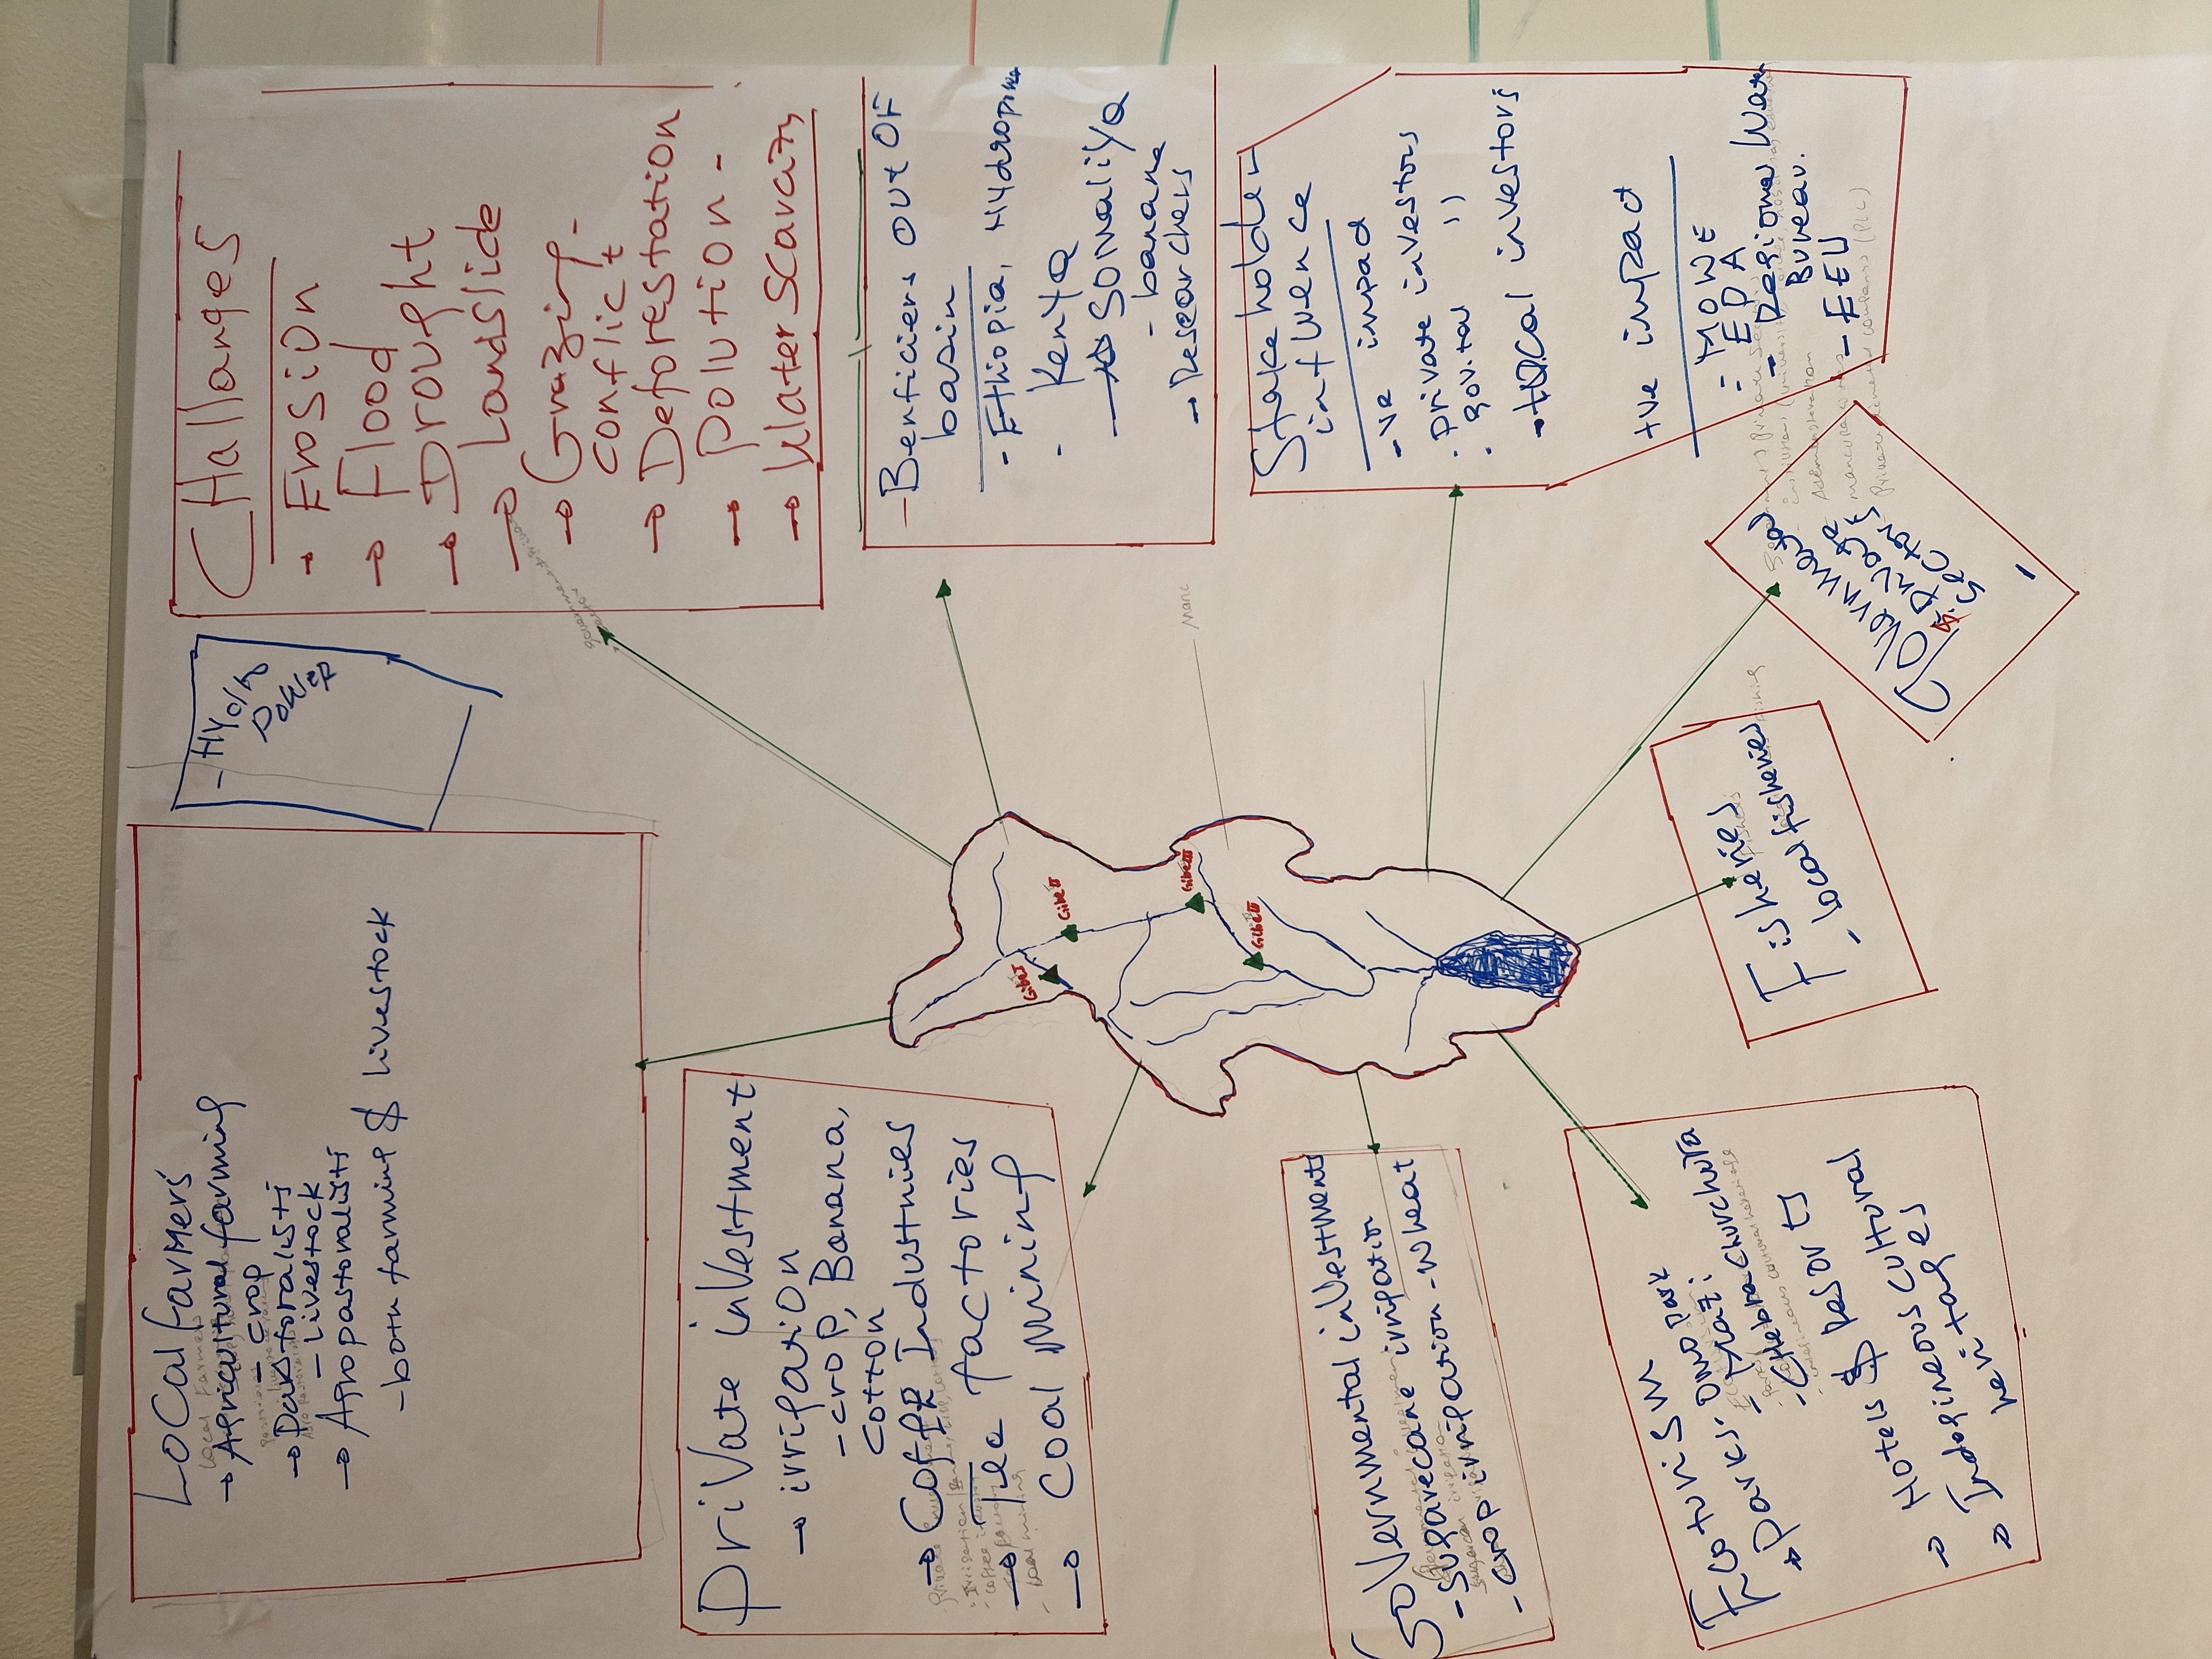 Local farmers
→ Agricultural farming
- crop
→ Pastoralists
- Livestock
→ Agropastoralists
- both farming & livestock
- Hydro
Power
Challanges
→ Erosion
→ Flood
→ Drought
→ Landslide
→ Grazing -
conflict
→ Deforestation
→ Polution -
→ Water Scarcity
Private inVestment
→ irrigation
- crop, Banana,
cotton
→ Coffe Industries
→ Tea factories
→ Coal Mining
- Benficiers out OF
basin
- Ethiopia, Hydropower
. Kenya
→ Somaliya
- banana
→ Researchers
Gibe I
Gibe II
Gibe III
Stake holder
influence
-ve impact
. private investors
. gov.tal 〃
→ local investors
+ve impact
- MOWE
- EPA
- Regional Water
Bureau.
- EEU
Governmental inVestments
- Sugarcane irrigation
- crop irrigation - wheat
Governmental
& private
Sectors
Fisheries
- local fisheries
Eco turism
→ Parks. Omo park
- Mazi
- Chebera churchura
→ Hotels & Resorts
→ Indogineous cultural
heritages